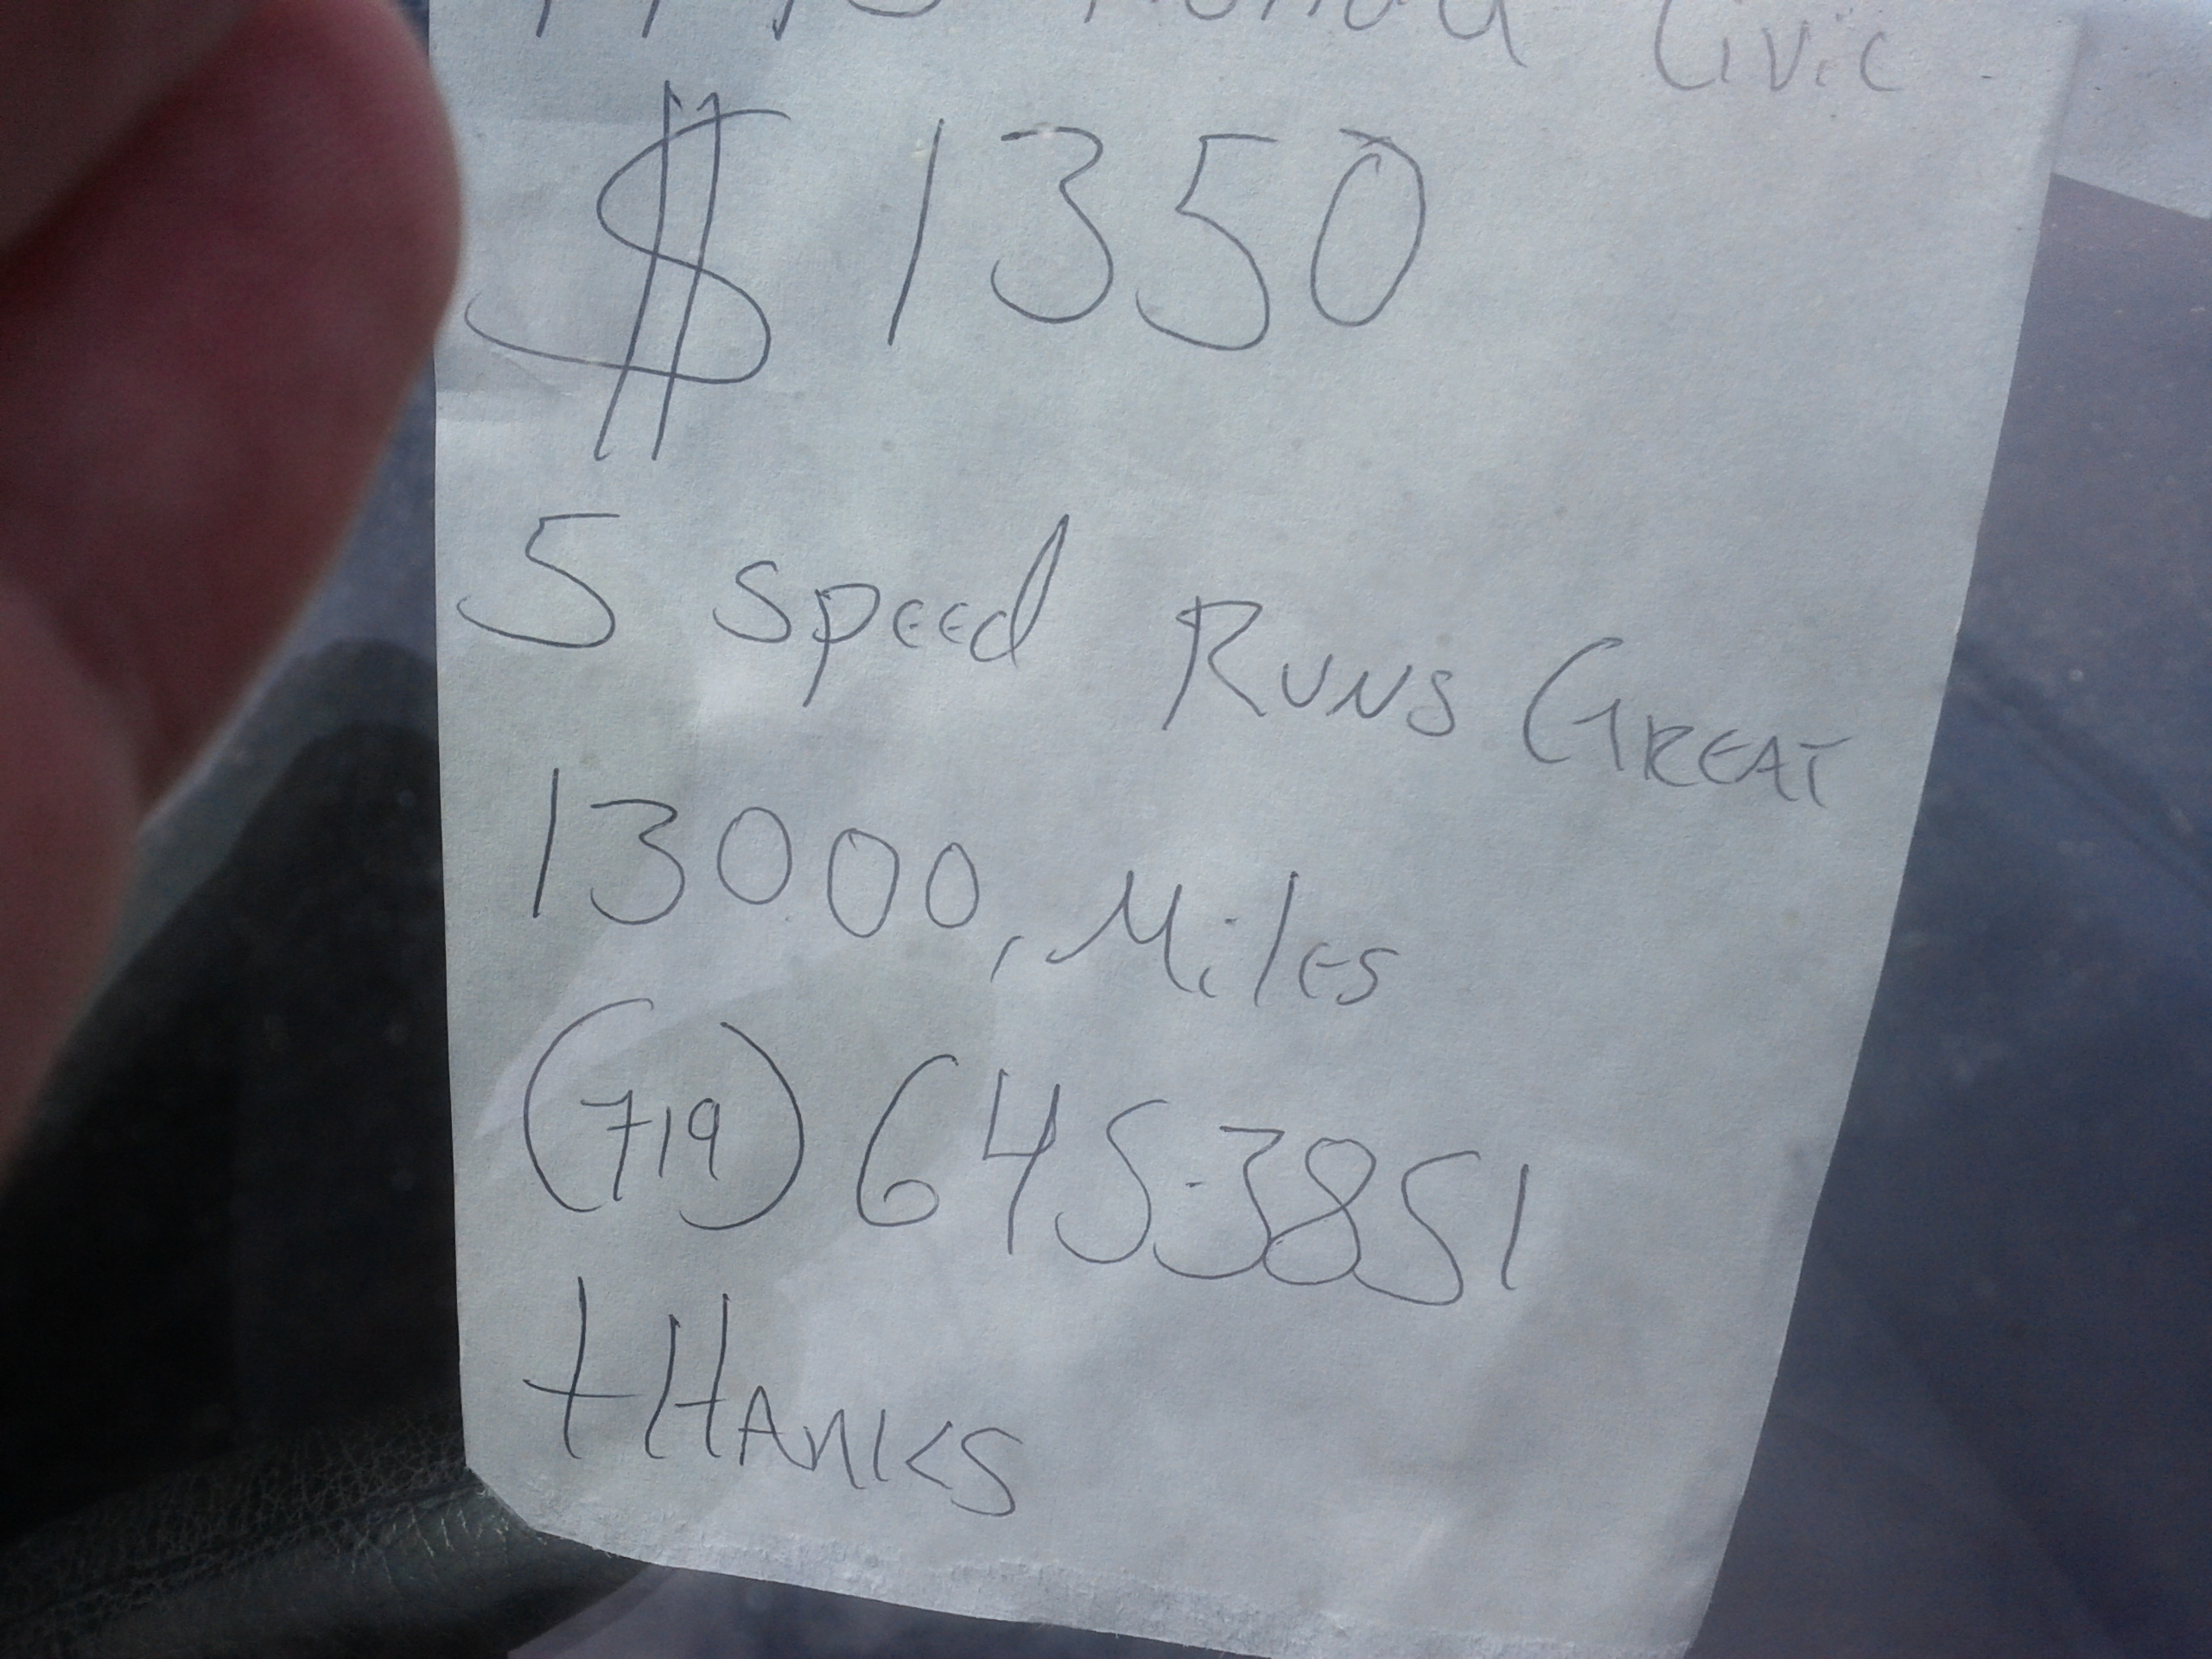 Honda Civic
$1350
5 Speed Runs Great
13000, Miles
(719) 645-3851
tHANKS